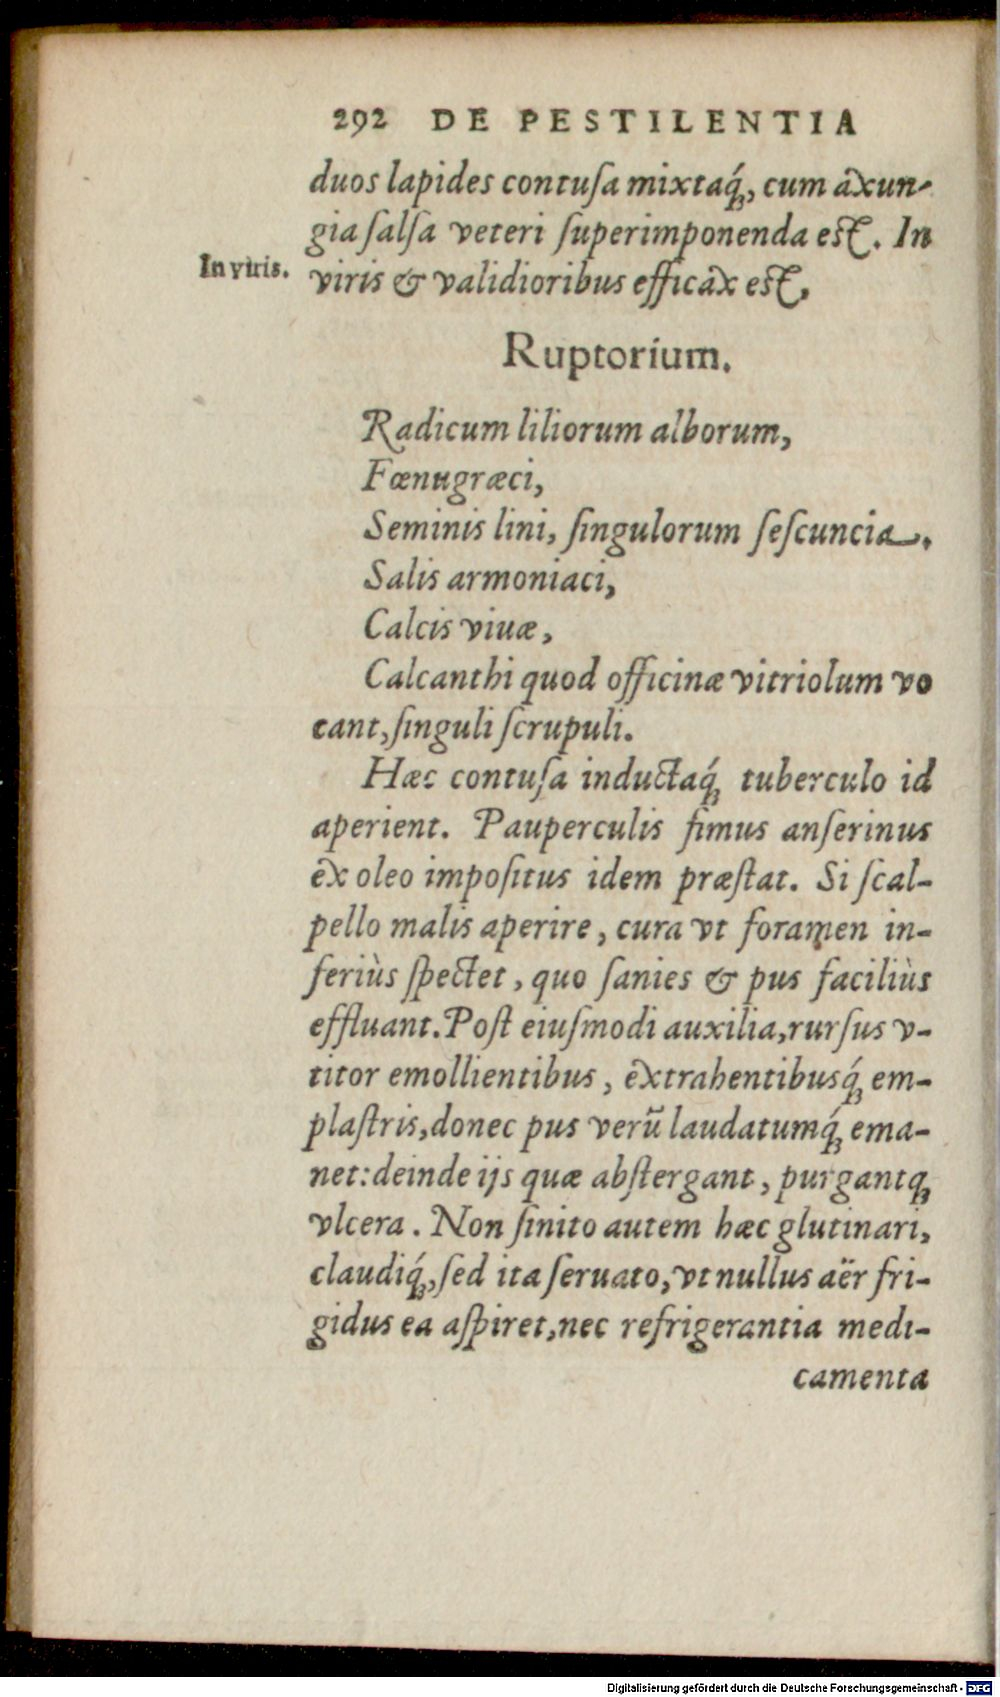 292 DE PESTILENTIA
duos lapides contuſa mixtaq́;, cum axun-
gia ſalſa veteri ſuperimponenda est. In
In viris.
viris & validioribus efficax est,
Ruptorium.
Radicum liliorum alborum,
Fœnugræci,
Seminis lini, ſingulorum ſeſcuncia.
Salis armoniaci,
Calcis viuæ,
Calcanthi quod officinæ vitriolum vo
cant, ſinguli ſcrupuli.
Hæc contuſa inductaq́; tuberculo id
aperient. Pauperculis fimus anſerinus
ex oleo impoſitus idem præſtat. Si ſcal-
pello malis aperire, cura vt foramen in-
feriùs ſpectet, quo ſanies & pus faciliùs
effluant. Poſt eiuſmodi auxilia, rurſus v-
titor emollientibus, extrahentibusq́; em-
plaſtris, donec pus verũ laudatumq́; ema-
net: deinde ijs quæ abſtergant, purgantq;
vlcera. Non ſinito autem hæc glutinari,
claudiq́;, ſed ita ſeruato, vt nullus aër fri-
gidus ea aſpiret, nec refrigerantia medi-
camenta
Digitalisierung gefördert durch die Deutsche Forschungsgemeinschaft - DFG